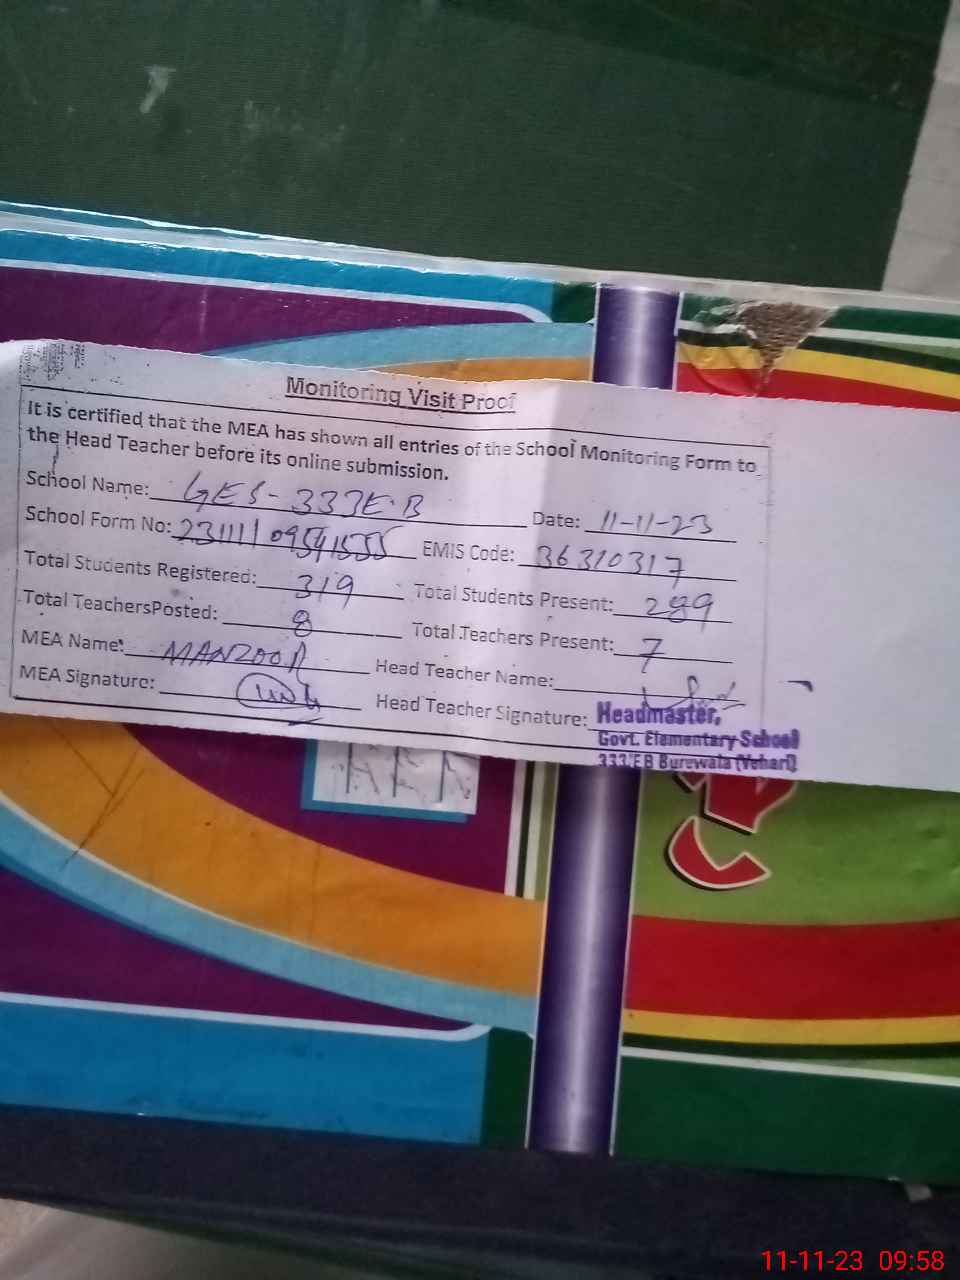 Monitoring Visit Proof
It is certified that the MEA has shown all entries of the School Monitoring Form to
the Head Teacher before its online submission.
School Name: GES-333E.B Date: 11-11-23
School Form No: EMIS Code: 36310317
Total Students Registered: 319 Total Students Present: 289
Total TeachersPosted: 8 Total Teachers Present: 7
MEA Name: MANZOOR Head Teacher Name:
MEA Signature: Head Teacher Signature:
Headmaster,
Govt. Elementary School
333/EB Burewala (Vehari)
11-11-23 09:58